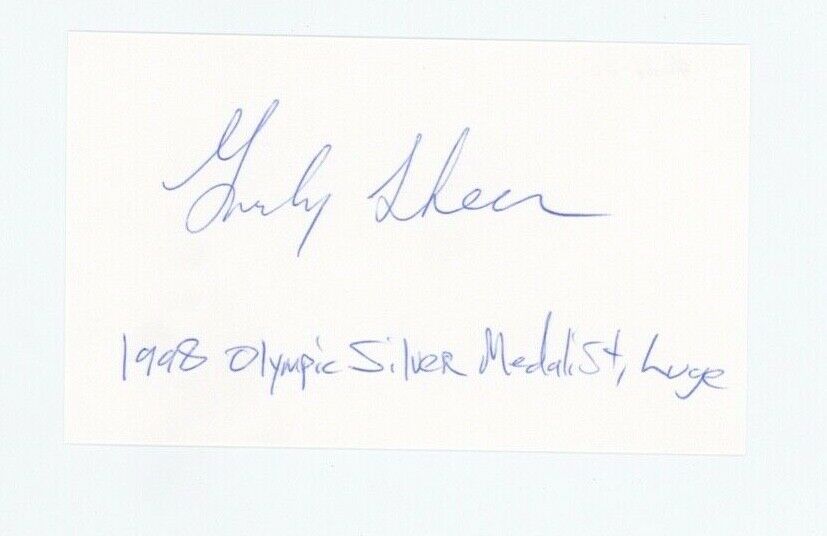 Gordy Sheer
1998 Olympic Silver Medalist, Luge